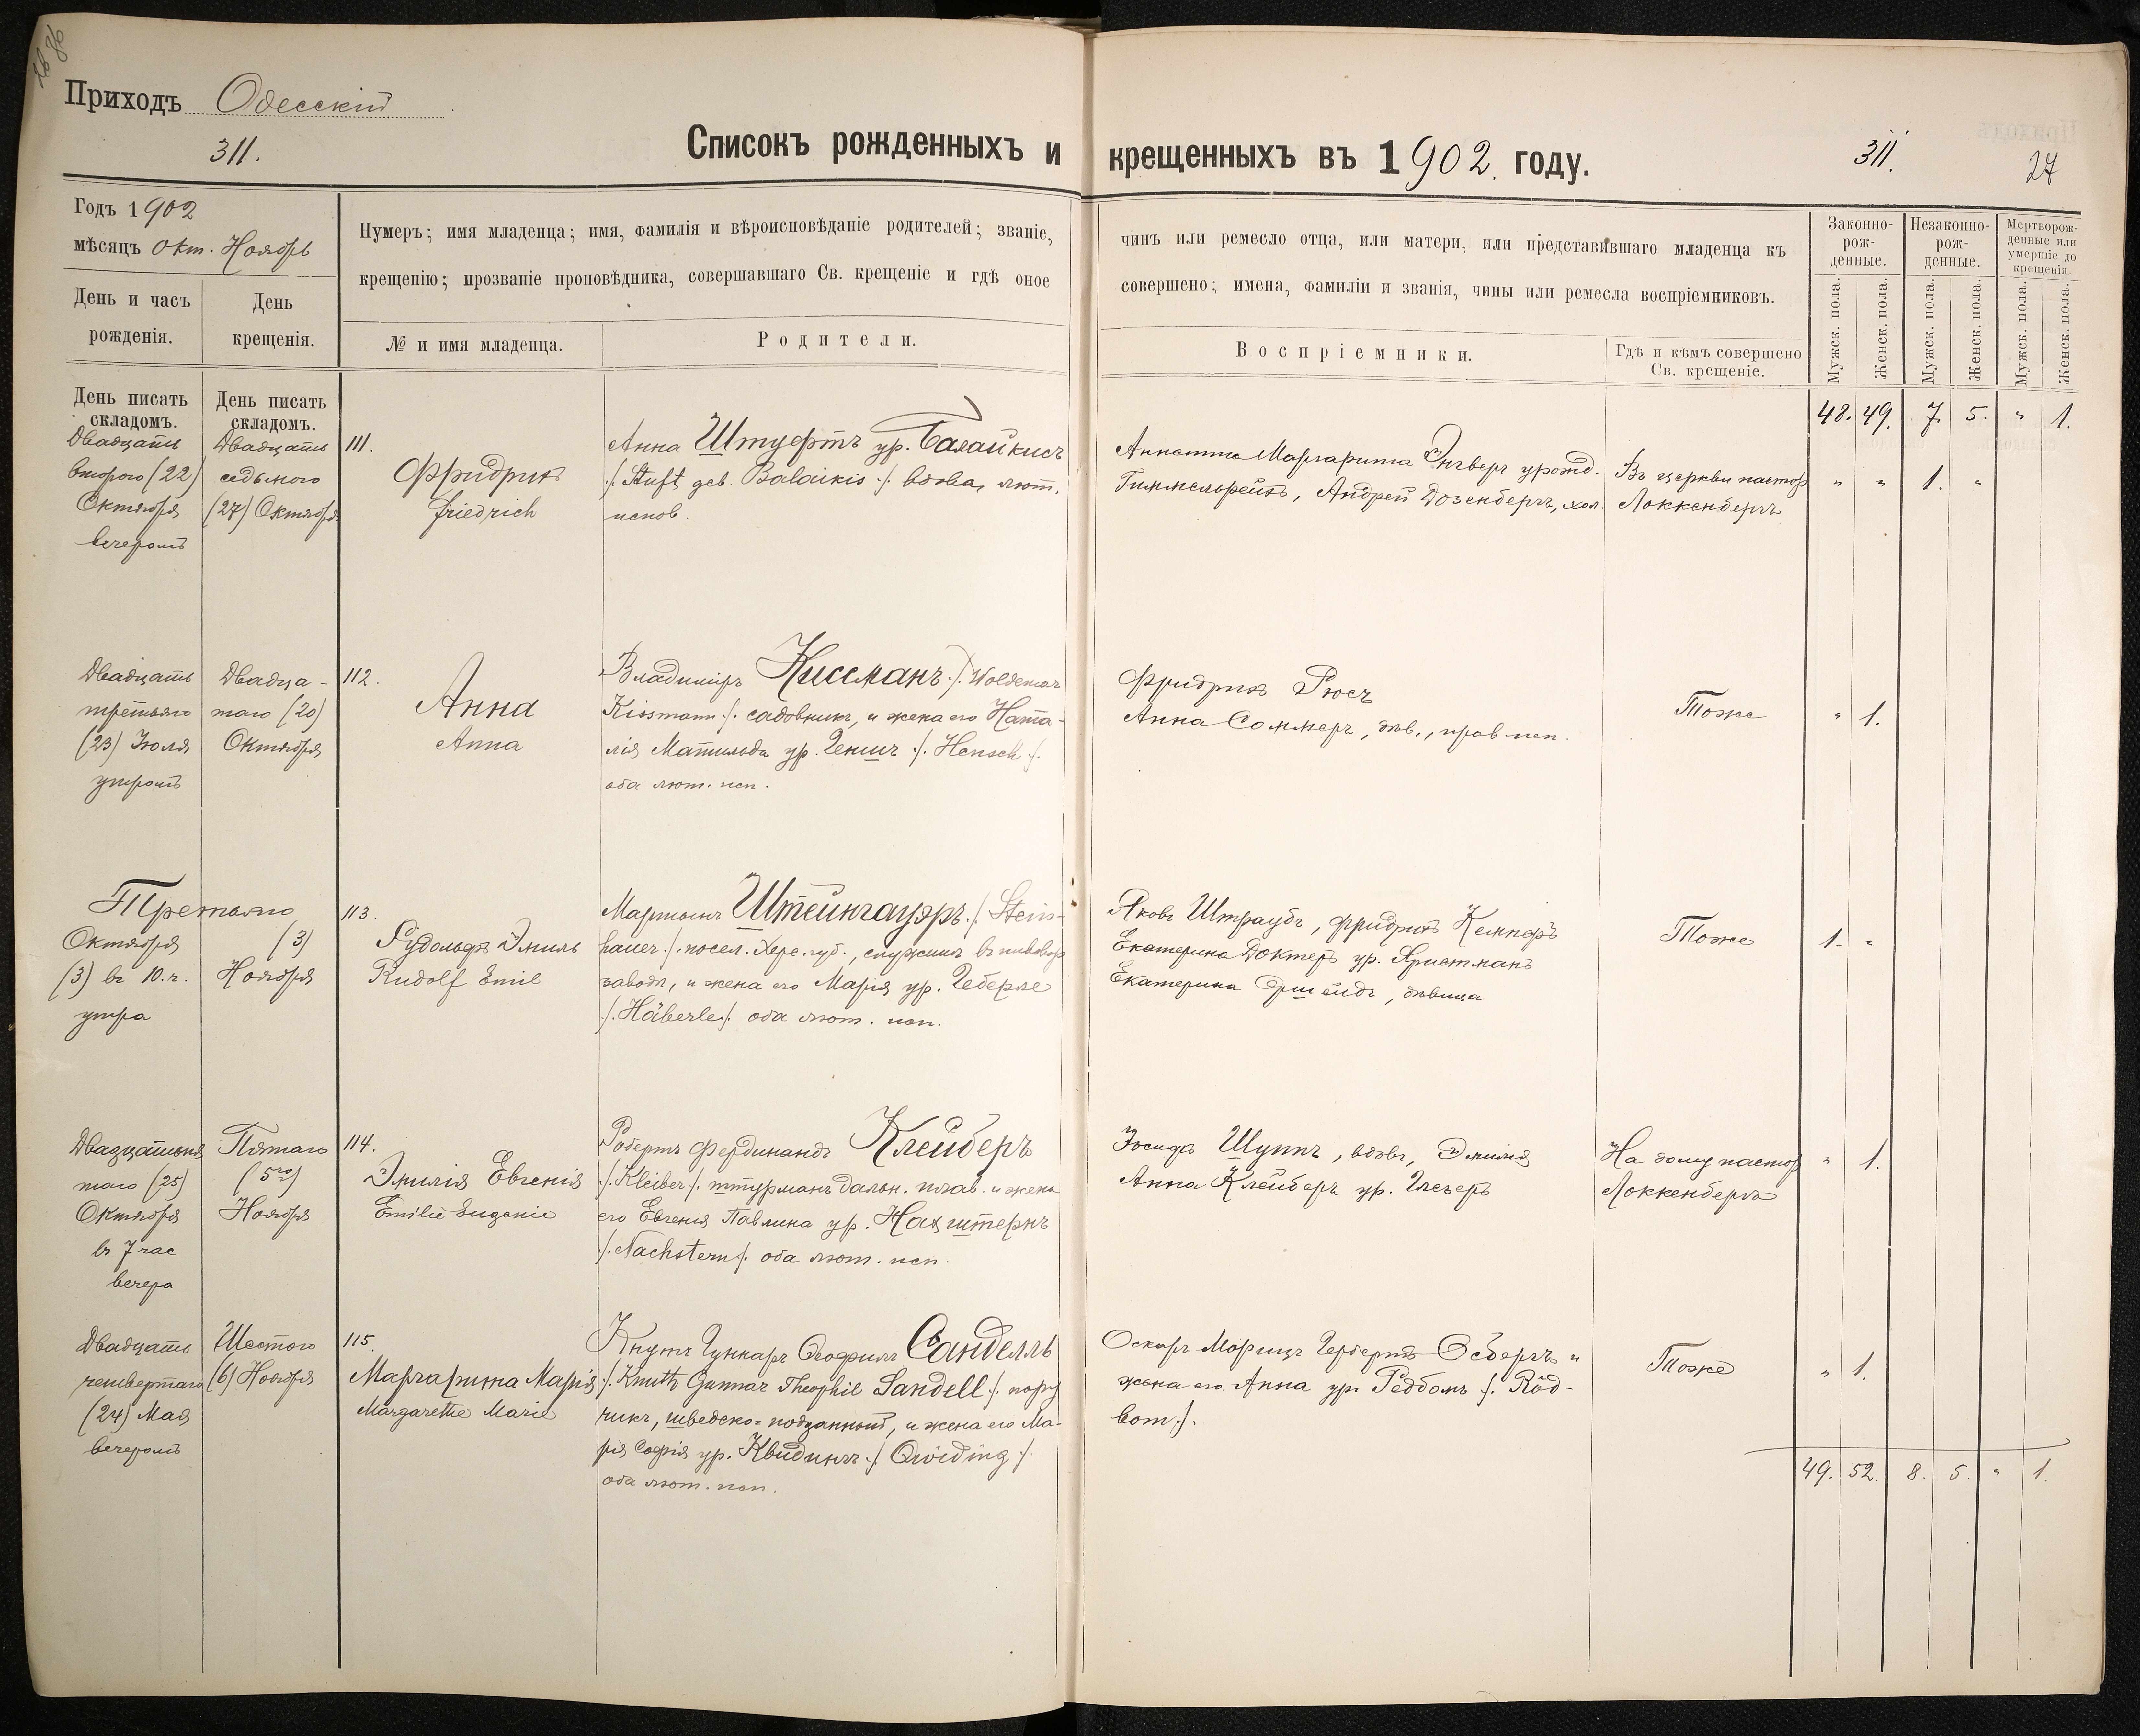 Приходъ Одесскій
311.
Списокъ рожденныхъ и крещенныхъ въ 1902. году.
311.
27
Годъ 1902
мѣсяцъ Окт. Ноябрь
День и часъ рожденія.
День крещенія.
Нумеръ; имя младенца; имя, фамилія и вѣроисповѣданіе родителей; званіе,
крещенію; прозваніе проповѣдника, совершавшаго Св. крещеніе и гдѣ оное
№ и имя младенца.
Родители.
чинъ или ремесло отца, или матери, или представившаго младенца къ
совершено; имена, фамиліи и званія, чины или ремесла воспріемниковъ.
Воспріемники.
Гдѣ и кѣмъ совершено
Св. крещеніе.
Законно-
рож-
денные.
Незаконно-
рож-
денные.
Мертворож-
денные или
умершіе до
крещенія.
Мужск. пола.
Женск. пола.
Мужск. пола.
Женск. пола.
Мужск. пола.
Женск. пола.
День писать
складомъ.
День писать
складомъ.
48. 49. 7. 5. " 1.
Двадцать
второго (22)
Октября
вечеромъ
Двадцать
седьмого
(27) Октября
111.
Фридрихъ
Friedrich
Анна Штуфтъ ур. Балайкисъ
/. Stuft geb. Balaikis ./ вдова, лют.
испов.
Аннетта Маргарита Энгверъ урожд.
Гиммельрейхъ, Андрей Дозенбергъ, хол.
Въ церкви пастор
Локкенбергъ
" " 1. "
Двадцать
третьяго
(23) Іюля
утромъ
Двадца-
таго (20)
Октября
112.
Анна
Anna
Владиміръ Киссманъ /. Woldemar
Kissmann ./. садовникъ, и жена его Ната-
лія Матильда ур. Геншъ /. Hensch ./.
оба лют. исп.
Фридрихъ Рюсъ
Анна Соммеръ, дѣв., прав исп.
Тоже
" 1.
Третьяго
Октября
(3) въ 10. ч.
утра
(3)
Ноября
113.
Рудольфъ Эмиль
Rudolf Emil
Мартынъ Штейнгауэръ /. Stein-
hauer ./. посел. Хере. губ., служащ въ пивовар
заводѣ, и жена его Марія ур. Геберле
/. Häberle ./. оба лют. исп.
Яковъ Штраубъ, Фридрихъ Кемпфъ
Екатерина Доктеръ ур. Аристманъ
Екатерина, дѣвица
Тоже
1. "
Двадцатьпя
таго (25)
Октября
въ 7 час
вечера
Пятаго
(5го)
Ноября
114.
Эмилія Евгенія
Emilie Eugenie
Робертъ Фердинандъ Клейберъ
/. Kleiber ./. штурманъ дальн. плав. и жена
его Евгенія Павлина ур. Нахштернъ
/. Nachstern ./. оба лют. исп.
Іосифъ Шуппъ, вдовъ, Эмилія
Анна Клейберъ ур. Глезеръ
На дому пастор
Локкенбергъ
" 1.
Двадцать
четвертаго
(24) Мая
вечеромъ
Шестого
(6) Ноября
115.
Маргарита Марія
Margarethe Marie
Кнутъ Гуннаръ Ѳеофилъ Санделль
/. Knuth Gunnar Theophil Sandell ./. пору
чикъ, шведско=подданный, и жена его Ма-
рія Софія ур. Квидингъ /. Qviding ./.
оба лют. исп.
Оскаръ Морицъ Гербертъ Осбергъ и
жена его Анна ур. Редбомъ /. Röd-
bom ./.
Тоже
" 1.
49. 52. 8. 5. " 1.